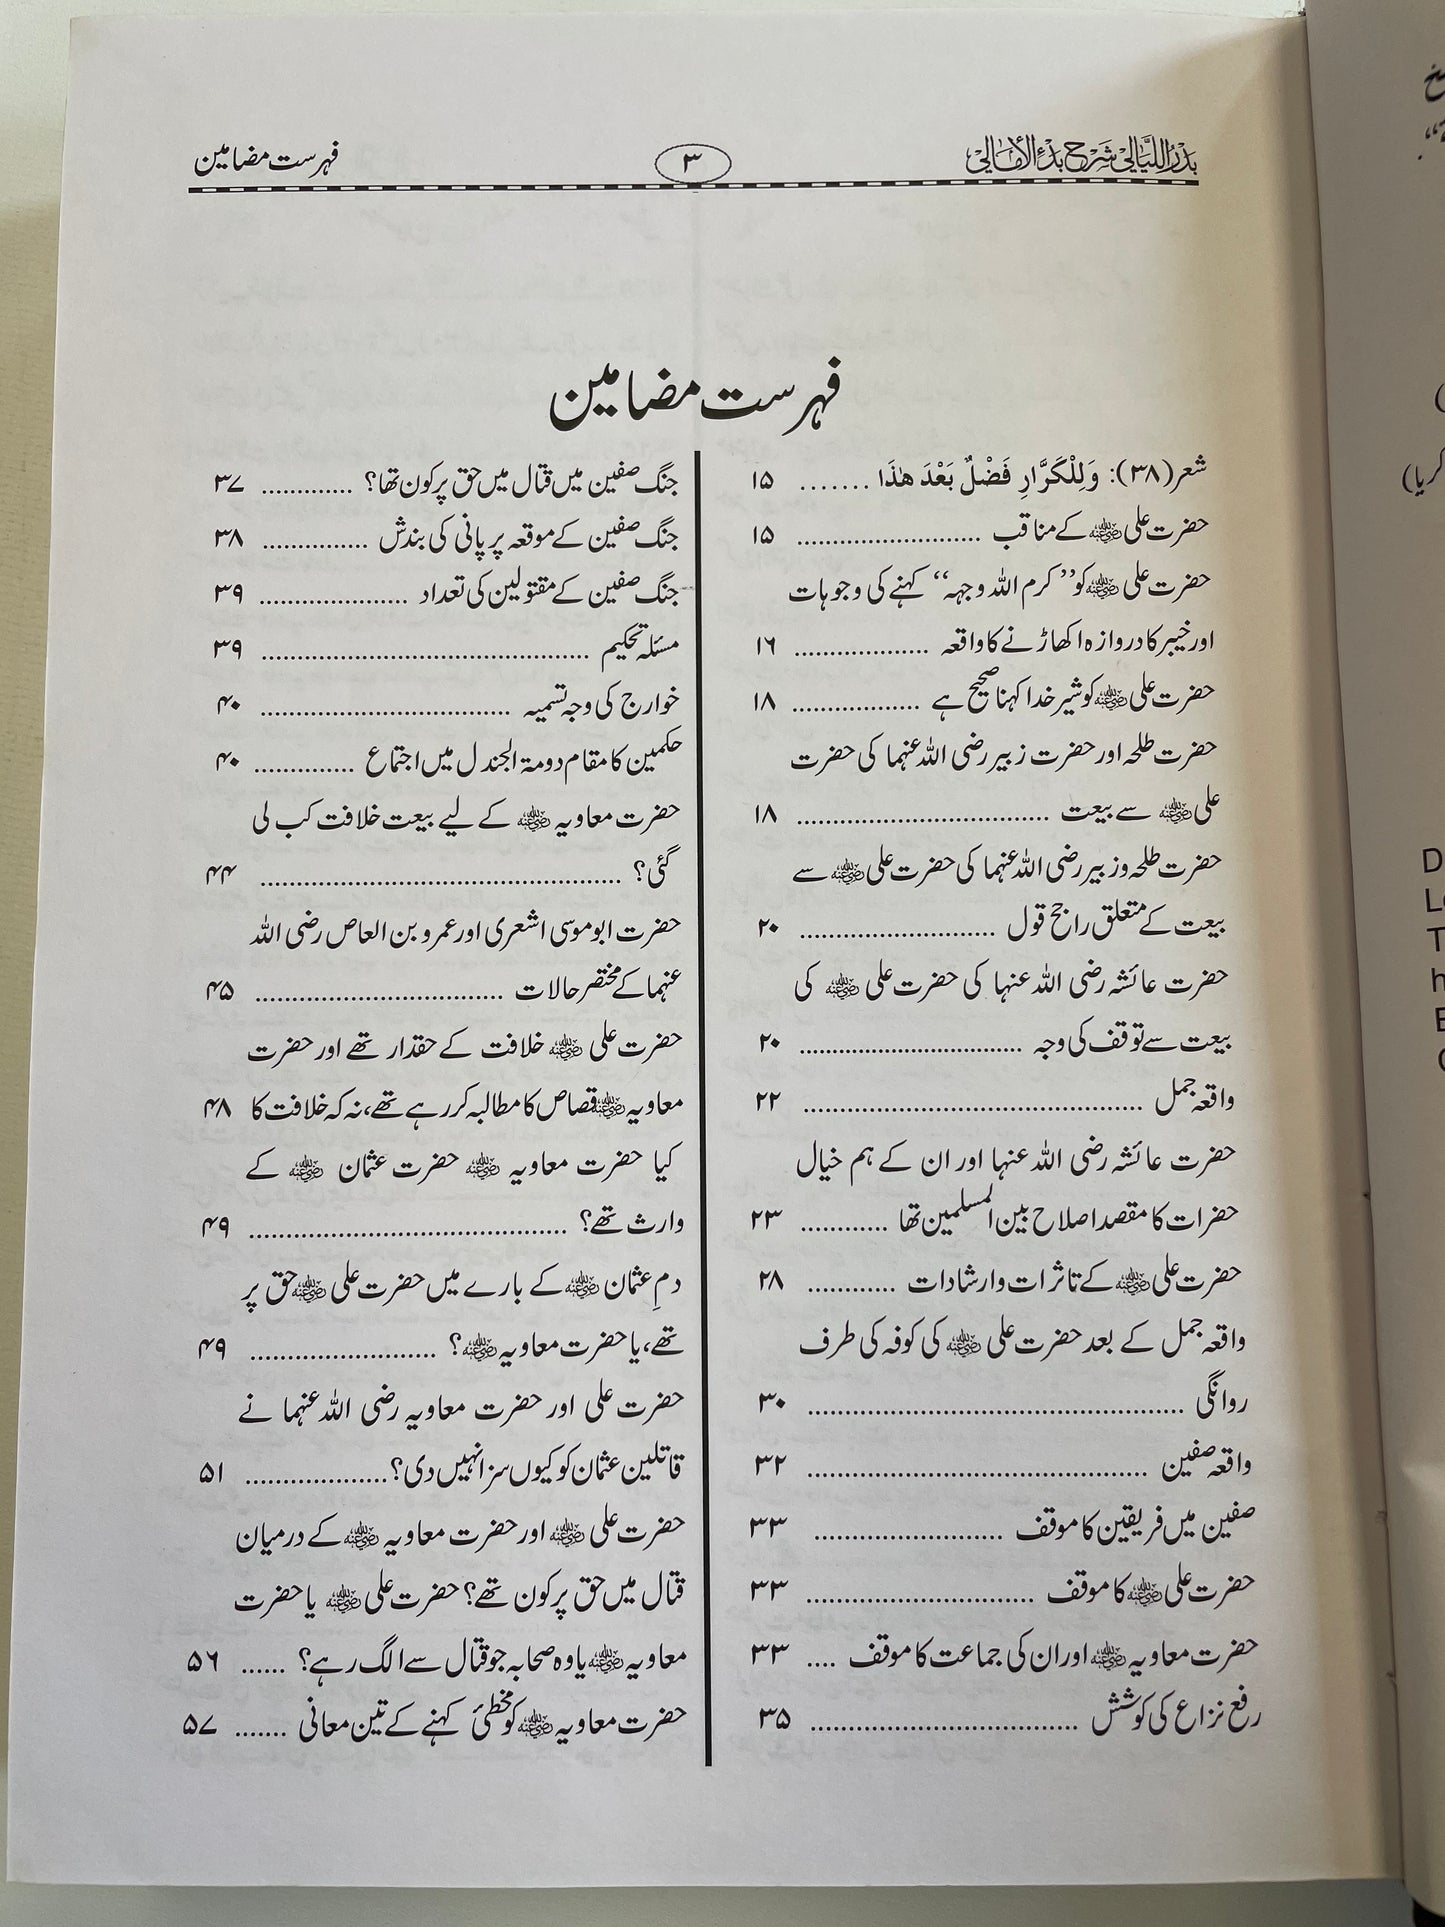 بَدْرُ اللَّيَالِيْ شَرْح بَدْءِ الأَمَالِيْ
۳
فہرست مضامین
فہرست مضامین
شعر (۳۸): وَلِلْكَرَّارِ فَضْلٌ بَعْدَ هٰذَا ....... ۱۵
حضرت علی ﷛ کے مناقب ......................... ۱۵
حضرت علی ﷛ کو ’’کرم اللہ وجہہ‘‘ کہنے کی وجوہات
اور خیبر کا دروازہ اکھاڑنے کا واقعہ ................... ۱۶
حضرت علی ﷛ کو شیر خدا کہنا صحیح ہے .................. ۱۸
حضرت طلحہ اور حضرت زبیر رضی اللہ عنہما کی حضرت
علی ﷛ سے بیعت ................................... ۱۸
حضرت طلحہ وزبیر رضی اللہ عنہما کی حضرت علی ﷛ سے
بیعت کے متعلق راجح قول ........................... ۲۰
حضرت عائشہ رضی اللہ عنہا کی حضرت علی ﷛ کی
بیعت سے توقف کی وجہ .............................. ۲۰
واقعہ جمل .............................................. ۲۲
حضرت عائشہ رضی اللہ عنہا اور ان کے ہم خیال
حضرات کا مقصد اصلاح بین المسلمین تھا ............ ۲۳
حضرت علی ﷛ کے تاثرات وارشادات ............ ۲۸
واقعہ جمل کے بعد حضرت علی ﷛ کی کوفہ کی طرف
روانگی ................................................... ۳۰
واقعہ صفین .............................................. ۳۲
صفین میں فریقین کا موقف ......................... ۳۳
حضرت علی ﷛ کا موقف .............................. ۳۳
حضرت معاویہ ﷛ اور ان کی جماعت کا موقف .... ۳۳
رفع نزاع کی کوشش .................................... ۳۵
جنگ صفین میں قتال میں حق پر کون تھا؟ ............. ۳۷
جنگ صفین کے موقعہ پر پانی کی بندش ............... ۳۸
جنگ صفین کے مقتولین کی تعداد .................... ۳۹
مسئلہ تحکیم ............................................. ۳۹
خوارج کی وجہ تسمیہ .................................. ۴۰
حکمین کا مقام دومۃ الجندل میں اجتماع .............. ۴۰
حضرت معاویہ ﷛ کے لیے بیعت خلافت کب لی
گئی؟ .................................................. ۴۴
حضرت ابو موسی اشعری اور عمرو بن العاص رضی اللہ
عنہما کے مختصر حالات .................................. ۴۵
حضرت علی ﷛ خلافت کے حقدار تھے اور حضرت
معاویہ ﷛ قصاص کا مطالبہ کر رہے تھے، نہ کہ خلافت کا ۴۸
کیا حضرت معاویہ ﷛ حضرت عثمان ﷛ کے
وارث تھے؟ ........................................... ۴۹
دمِ عثمان ﷛ کے بارے میں حضرت علی ﷛ حق پر
تھے، یا حضرت معاویہ ﷛؟ ......................... ۴۹
حضرت علی اور حضرت معاویہ رضی اللہ عنہما نے
قاتلین عثمان کو کیوں سزا نہیں دی؟ ................... ۵۱
حضرت علی ﷛ اور حضرت معاویہ ﷛ کے درمیان
قتال میں حق پر کون تھے؟ حضرت علی ﷛ یا حضرت
معاویہ ﷛ یا وہ صحابہ جو قتال سے الگ رہے؟ ...... ۵۶
حضرت معاویہ ﷛ کو مخطئ کہنے کے تین معانی ....... ۵۷